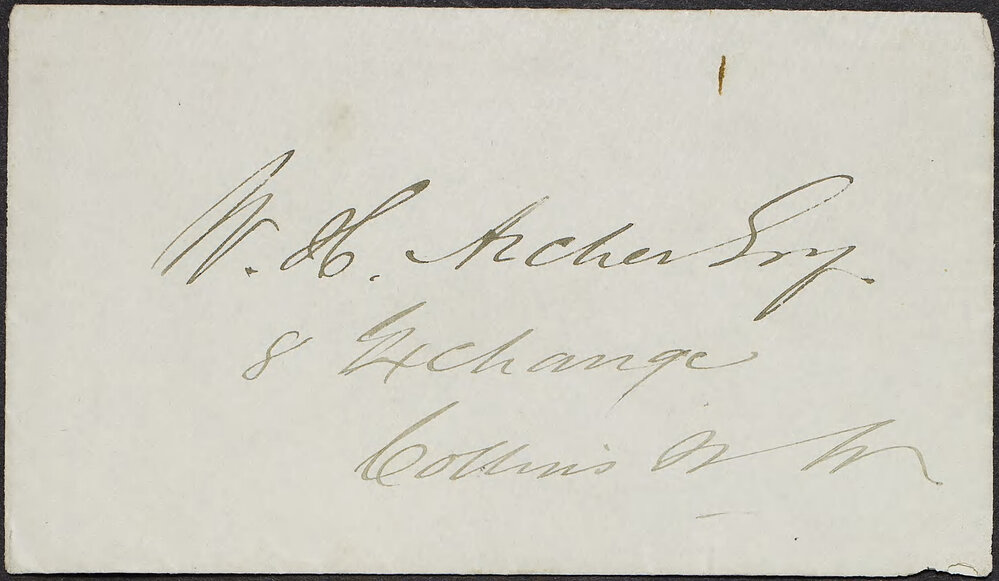 W. H. Archer Esq.
8 Exchange
Collins St W.